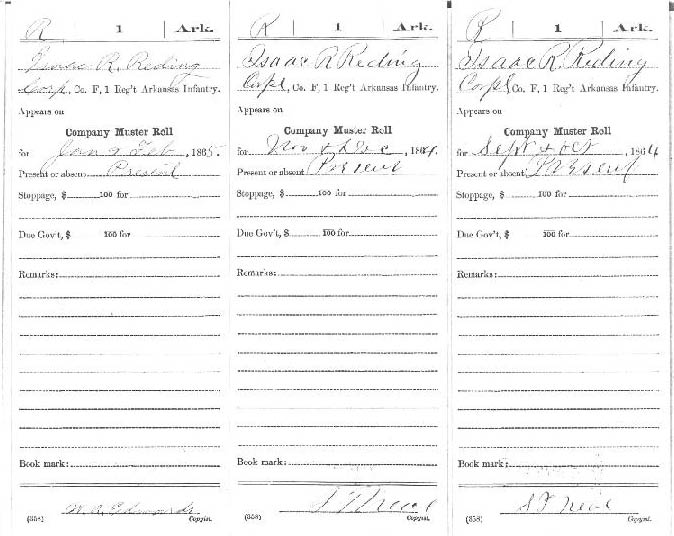 R | 1 | Ark.
Isaac R. Reding
Corp, Co. F, 1 Reg't Arkansas Infantry.
Appears on
Company Muster Roll
for Jan & Feb, 1865.
Present or absent Present
Stoppage, $ 100 for
Due Gov't, $ 100 for
Remarks:
Book mark:
W. A. Edwards
(358) Copyist.
R | 1 | Ark.
Isaac R Reding
Corpl, Co. F, 1 Reg't Arkansas Infantry.
Appears on
Company Muster Roll
for Nov & Dec, 1864.
Present or absent Present
Stoppage, $ 100 for
Due Gov't, $ 100 for
Remarks:
Book mark:
S T Neal
(358) Copyist.
R | 1 | Ark.
Isaac R Reding
Corpl, Co. F, 1 Reg't Arkansas Infantry.
Appears on
Company Muster Roll
for Sept & Oct, 1864
Present or absent Present
Stoppage, $ 100 for
Due Gov't, $ 100 for
Remarks:
Book mark:
S T Neal
(358) Copyist.